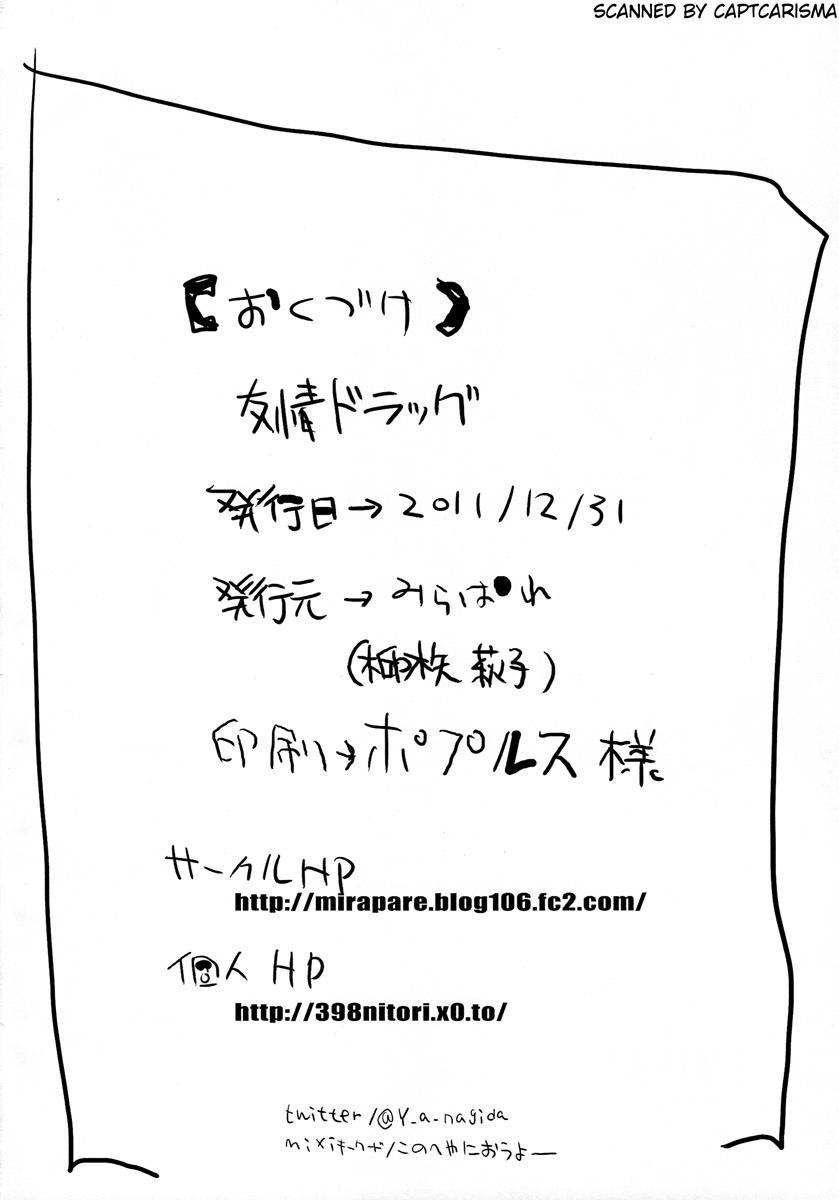 SCANNED BY CAPTCARISMA
【おくづけ】
友情ドラッグ
発行日→2011/12/31
発行元→みらぱれ
(萩子)
印刷→ポプルス様
サークルHP
http://mirapare.blog106.fc2.com/
個人HP
http://398nitori.x0.to/
twitter/@y_a_nagida
mixiキーワード/このへやにおうよー